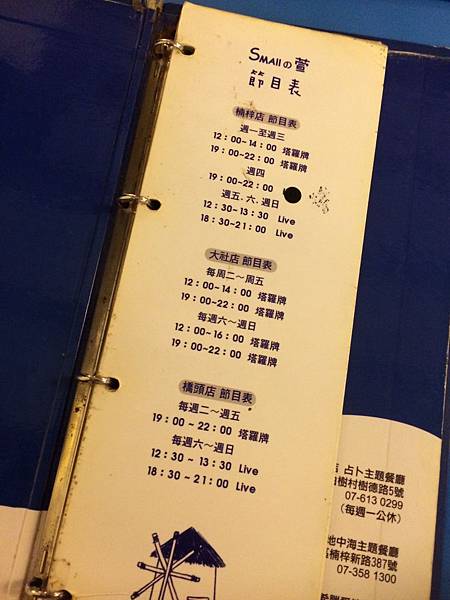 SMAllの萱
節目表
楠梓店 節目表
週一至週三
12：00~14：00 塔羅牌
19：00~22：00 塔羅牌
週四
19：00~22：00
週五.六.週日
12：30~13：30 Live
18：30~21：00 Live
大社店 節目表
每周二～周五
12：00~14：00 塔羅牌
19：00~22：00 塔羅牌
每週六～週日
12：00~16：00 塔羅牌
19：00~22：00 塔羅牌
橋頭店 節目表
每週二～週五
19：00 ~ 22：00 塔羅牌
每週六～週日
12：30 ~ 13：30 Live
18：30 ~ 21：00 Live
占卜主題餐廳
樹村樹德路5號
07-613 0299
(每週一公休)
地中海主題餐廳
楠梓新路387號
07-358 1300